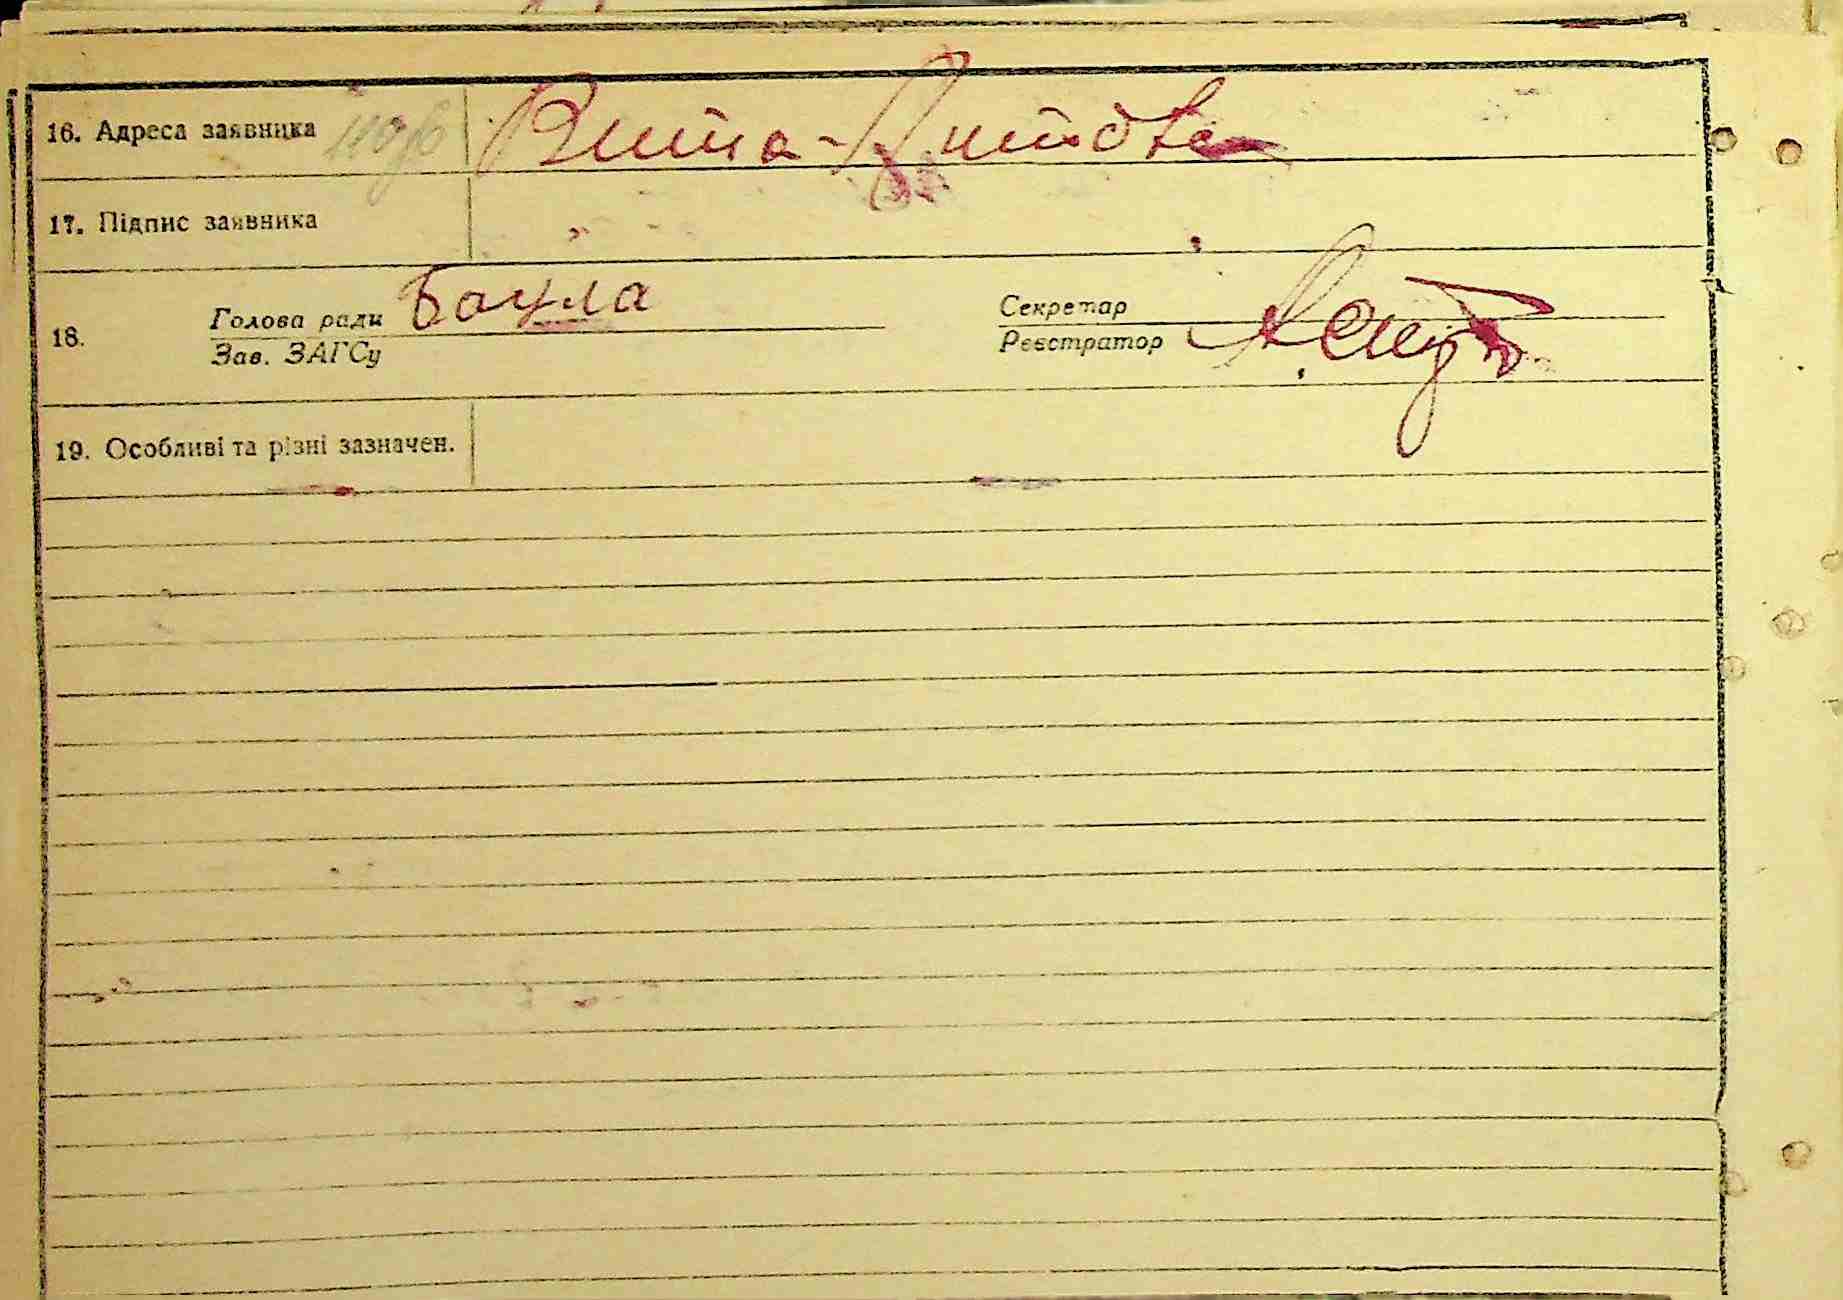 16. Адреса заявника Вита-Литовск
17. Підпис заявника
18. Голова ради Баула Секретар
Зав. ЗАГСу Реєстратор
19. Особливі та різні зазначен.